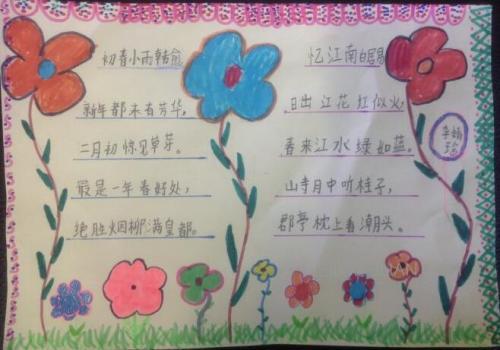 初春小雨韩愈
新年都未有芳华,
二月初惊见草芽。
最是一年春好处,
绝胜烟柳满皇都。
忆江南白居易
日出江花红似火,
春来江水绿如蓝。
山寺月中听桂子,
郡亭枕上看潮头。